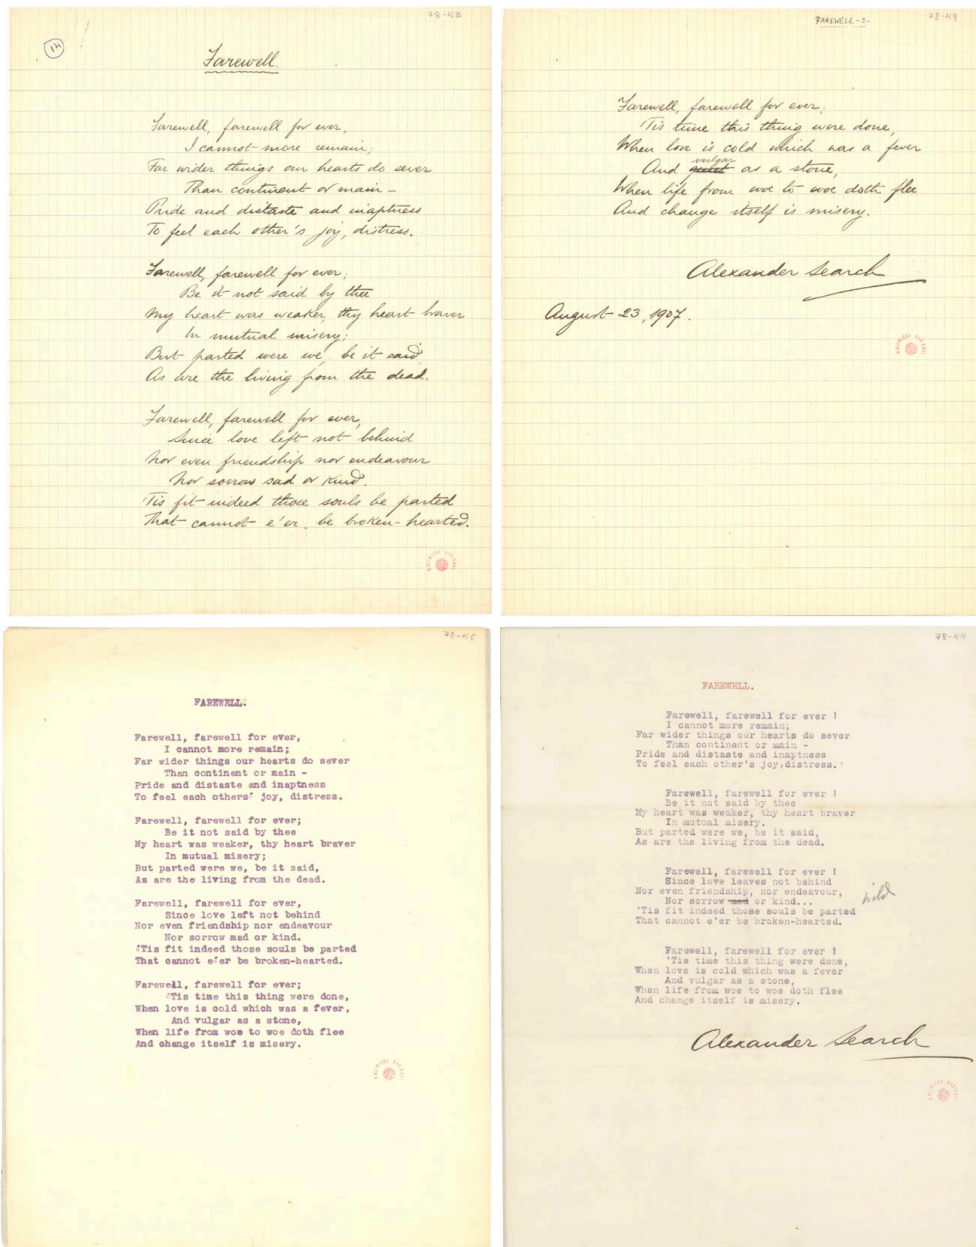 78-53
14
Farewell.
Farewell, farewell for ever,
I cannot more remain;
Far wider things our hearts do sever
Than continent or main —
Pride and distaste and inaptness
To feel each other's joy, distress.
Farewell, farewell for ever;
Be it not said by thee
My heart was weaker, thy heart braver
In mutual misery;
But parted were we, be it said,
As are the living from the dead.
Farewell, farewell for ever,
Since love left not behind
Nor even friendship nor endeavour
Nor sorrow sad or kind.
'Tis fit indeed those souls be parted
That cannot e'er be broken-hearted.
78-54
FAREWELL -2-
Farewell, farewell for ever;
'Tis time this thing were done,
When love is cold which was a fever
vulgar
And as a stone,
When life from woe to woe doth flee
And change itself is misery.
Alexander Search
August 23, 1907.
FAREWELL.
Farewell, farewell for ever,
I cannot more remain;
Far wider things our hearts do sever
Than continent or main -
Pride and distaste and inaptness
To feel each others' joy, distress.
Farewell, farewell for ever;
Be it not said by thee
My heart was weaker, thy heart braver
In mutual misery;
But parted were we, be it said,
As are the living from the dead.
Farewell, farewell for ever,
Since love left not behind
Nor even friendship nor endeavour
Nor sorrow mad or kind.
'Tis fit indeed those souls be parted
That cannot e'er be broken-hearted.
Farewell, farewell for ever;
'Tis time this thing were done,
When love is cold which was a fever,
And vulgar as a stone,
When life from woe to woe doth flee
And change itself is misery.
FAREWELL.
Farewell, farewell for ever !
I cannot more remain;
Far wider things our hearts do sever
Than continent or main -
Pride and distaste and inaptness
To feel each other's joy,distress.
Farewell, farewell for ever !
Be it not said by thee
My heart was weaker, thy heart braver
In mutual misery.
But parted were we, be it said,
As are the living from the dead.
Farewell, farewell for ever !
Since love leaves not behind
Nor even friendship, nor endeavour,
Nor sorrow mad or kind...
wild
'Tis fit indeed those souls be parted
That cannot e'er be broken-hearted.
Farewell, farewell for ever !
'Tis time this thing were done,
When love is cold which was a fever
And vulgar as a stone,
When life from woe to woe doth flee
And change itself is misery.
Alexander Search